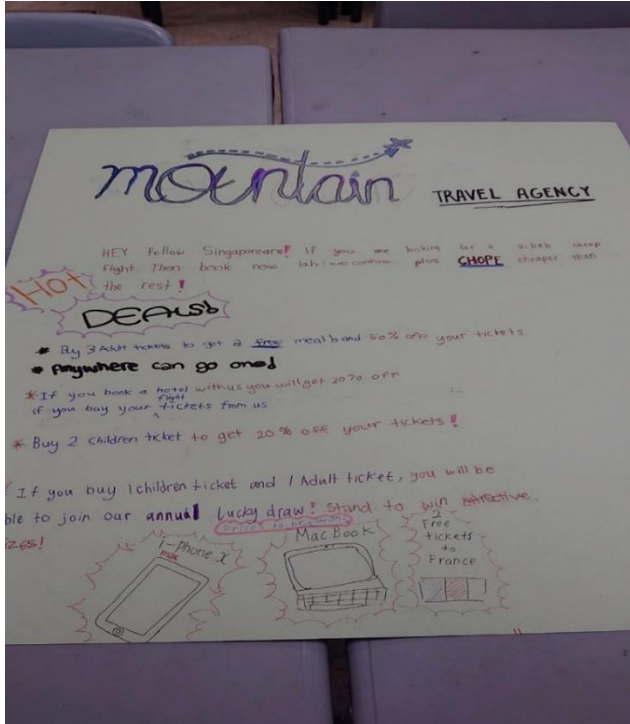 mountain TRAVEL AGENCY
HEY Fellow Singaporeans! If you are looking for a sibeh cheap
flight. Then book now lah! we confirm plus CHOPE cheaper than
the rest!
HOT
DEALS!
* Buy 3 Adult tickets to get a free meal and 50% off your tickets
* Anywhere can go one!
* If you book a hotel with us you will get 20% off
if you buy your flight tickets from us
* Buy 2 children ticket to get 20% off your tickets!
If you buy 1 children ticket and 1 Adult ticket, you will be
ble to join our annual Lucky draw! Stand to win attractive
zes!
i-Phone X
max
MacBook
2
Free
tickets
to
France